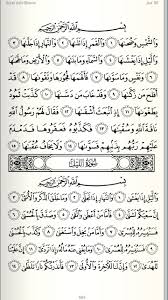 Juz 30
بِسْمِ ٱللَّهِ ٱلرَّحْمَٰنِ ٱلرَّحِيمِ
وَٱلشَّمْسِ وَضُحَىٰهَا ١ وَٱلْقَمَرِ إِذَا تَلَىٰهَا ٢ وَٱلنَّهَارِ إِذَا جَلَّىٰهَا ٣
وَٱلَّيْلِ إِذَا يَغْشَىٰهَا ٤ وَٱلسَّمَآءِ وَمَا بَنَىٰهَا ٥ وَٱلْأَرْضِ وَمَا طَحَىٰهَا ٦
وَنَفْسٍ وَمَا سَوَّىٰهَا ٧ فَأَلْهَمَهَا فُجُورَهَا وَتَقْوَىٰهَا ٨ قَدْ
أَفْلَحَ مَن زَكَّىٰهَا ٩ وَقَدْ خَابَ مَن دَسَّىٰهَا ١٠ كَذَّبَتْ ثَمُودُ
بِطَغْوَىٰهَآ ١١ إِذِ ٱنۢبَعَثَ أَشْقَىٰهَا ١٢ فَقَالَ لَهُمْ رَسُولُ ٱللَّهِ
نَاقَةَ ٱللَّهِ وَسُقْيَٰهَا ١٣ فَكَذَّبُوهُ فَعَقَرُوهَا فَدَمْدَمَ عَلَيْهِمْ
رَبُّهُم بِذَنۢبِهِمْ فَسَوَّىٰهَا ١٤ وَلَا يَخَافُ عُقْبَٰهَا ١٥
سُورَةُ اللَّيْلِ
بِسْمِ ٱللَّهِ ٱلرَّحْمَٰنِ ٱلرَّحِيمِ
وَٱلَّيْلِ إِذَا يَغْشَىٰ ١ وَٱلنَّهَارِ إِذَا تَجَلَّىٰ ٢ وَمَا خَلَقَ ٱلذَّكَرَ وَٱلْأُنثَىٰٓ ٣
إِنَّ سَعْيَكُمْ لَشَتَّىٰ ٤ فَأَمَّا مَنْ أَعْطَىٰ وَٱتَّقَىٰ ٥ وَصَدَّقَ بِٱلْحُسْنَىٰ ٦
فَسَنُيَسِّرُهُۥ لِلْيُسْرَىٰ ٧ وَأَمَّا مَنۢ بَخِلَ وَٱسْتَغْنَىٰ ٨ وَكَذَّبَ بِٱلْحُسْنَىٰ ٩
فَسَنُيَسِّرُهُۥ لِلْعُسْرَىٰ ١٠ وَمَا يُغْنِى عَنْهُ مَالُهُۥٓ إِذَا تَرَدَّىٰٓ ١١ إِنَّ عَلَيْنَا
لَلْهُدَىٰ ١٢ وَإِنَّ لَنَا لَلْءَاخِرَةَ وَٱلْأُولَىٰ ١٣ فَأَنذَرْتُكُمْ نَارًا تَلَظَّىٰ ١٤